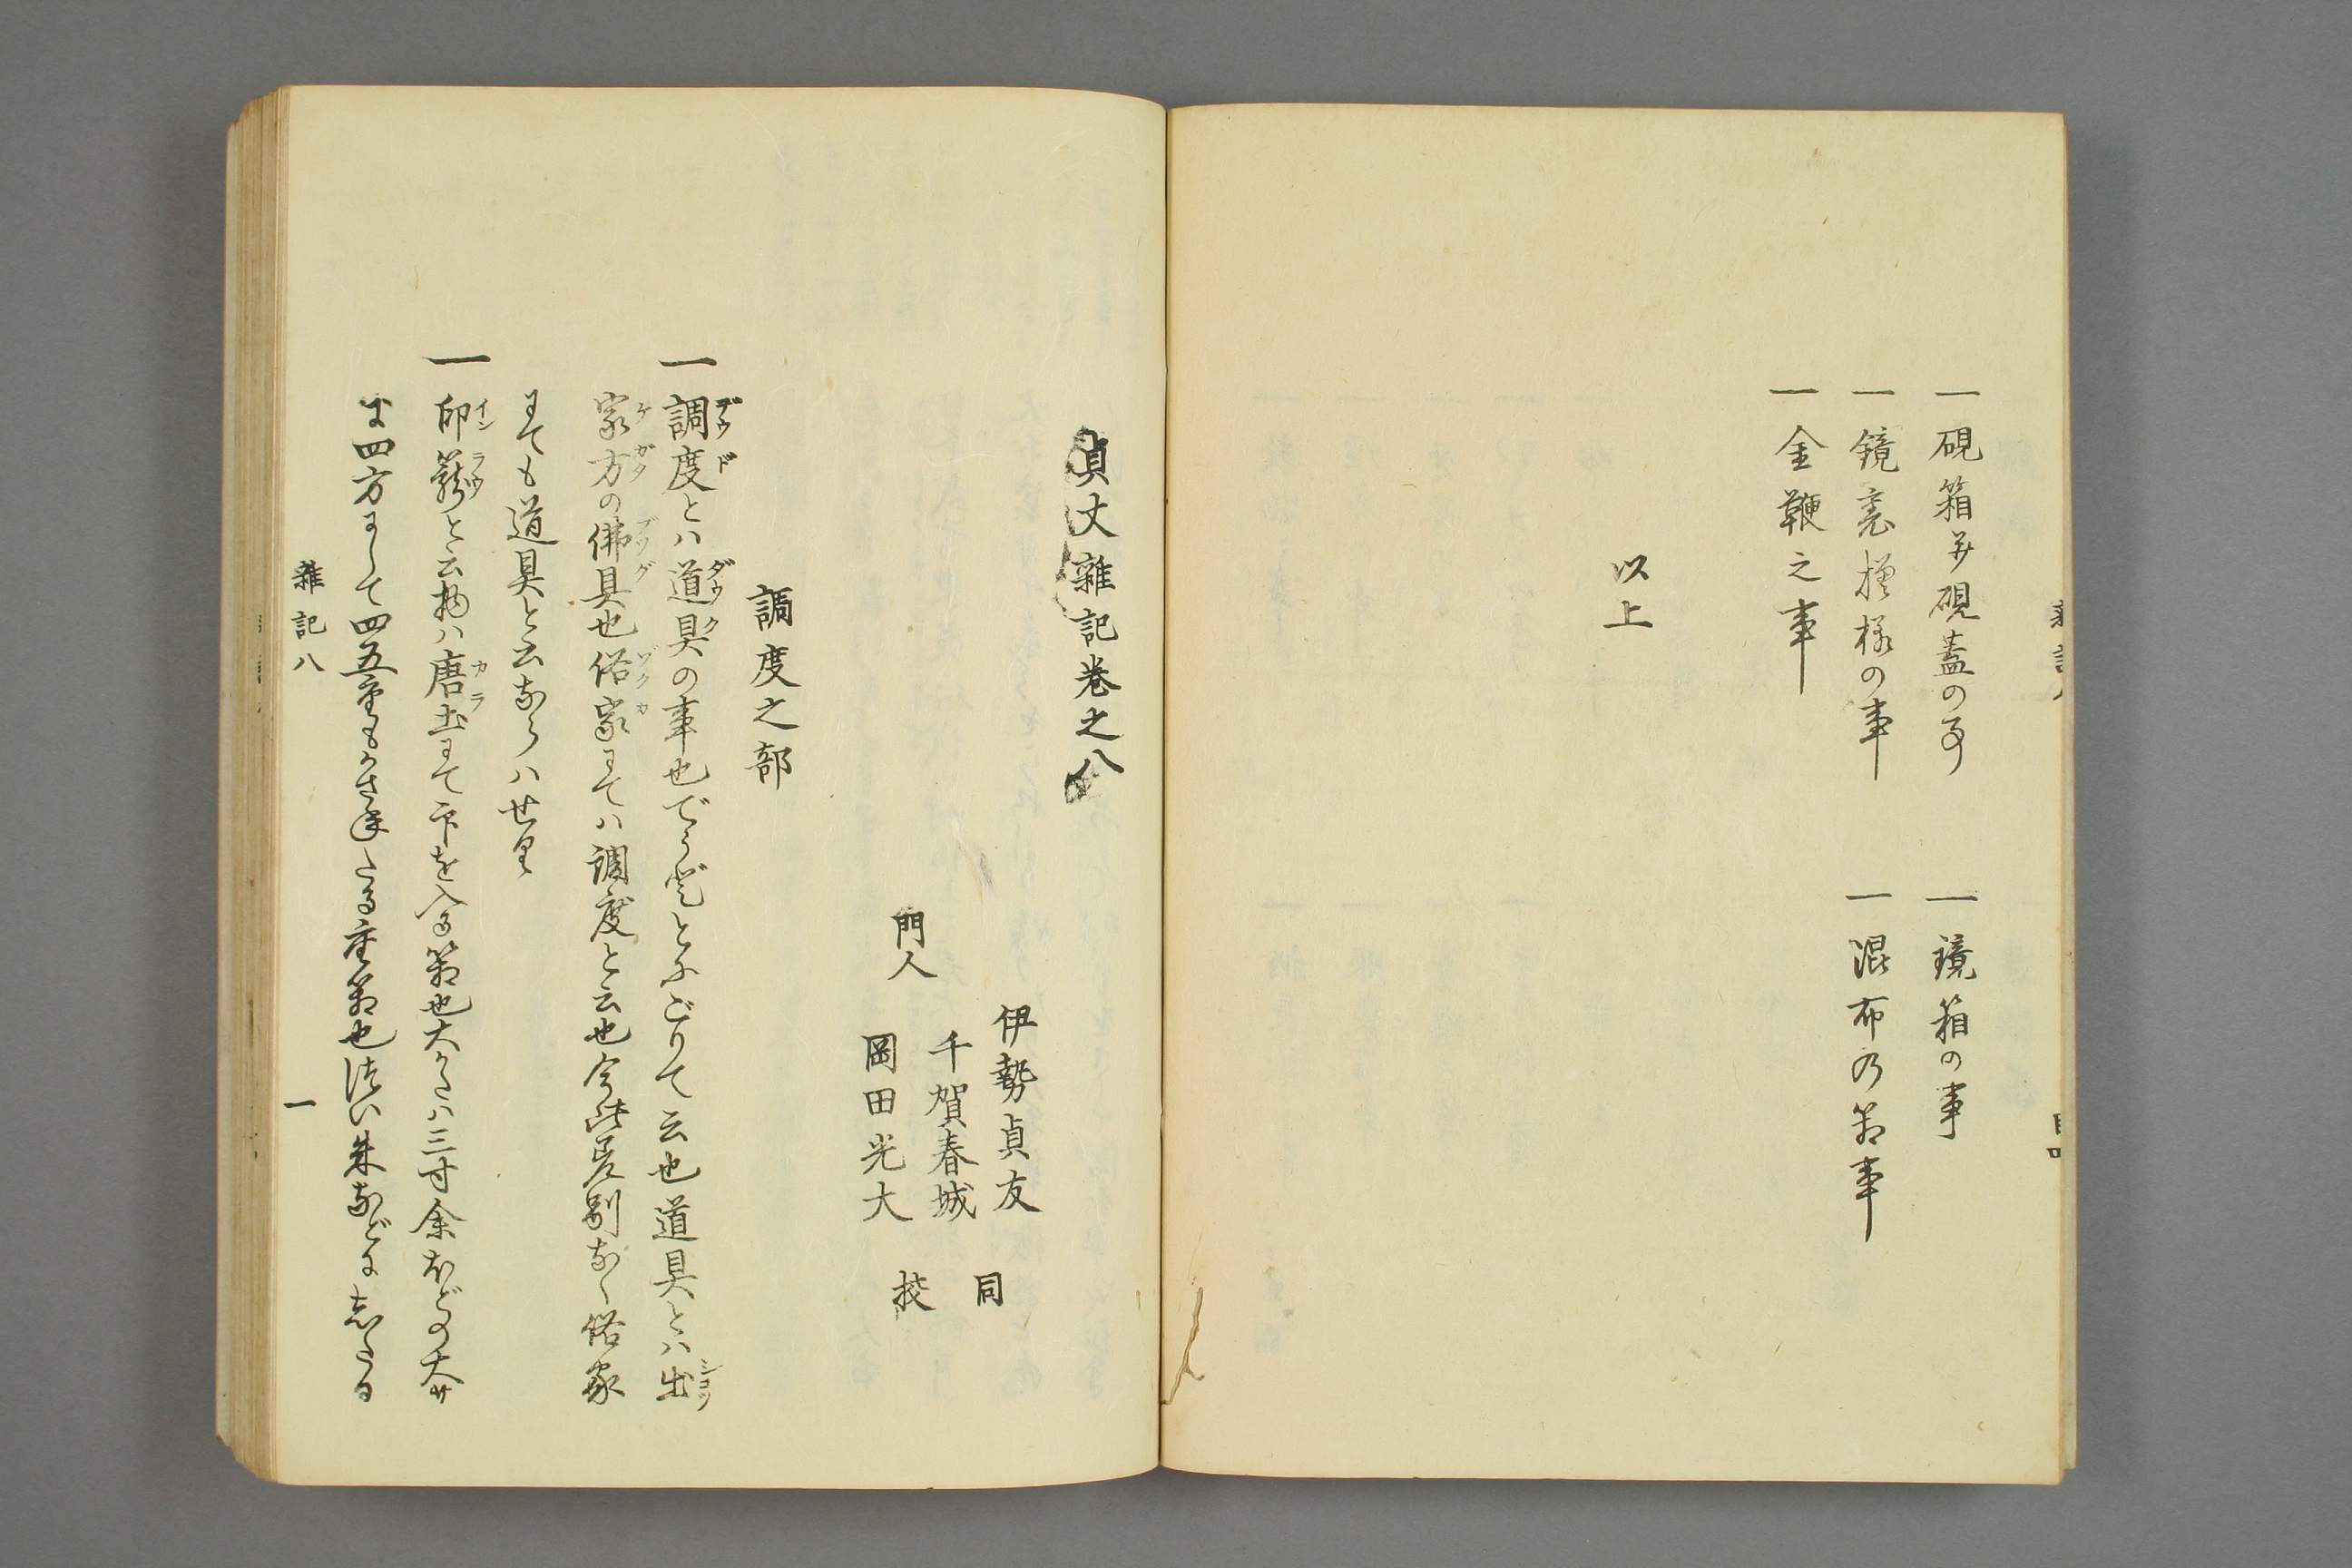 一硯箱并硯蓋の事
一鏡箱の事
一鏡裏摸様の事
一混布乃箱事
一金鞭之事
以上
貞丈雜記巻之八
伊勢貞友
千賀春城
同
門人
岡田光大
挍
調度之部
一調度とハ道具の事也でうどをにごりて云也道具とハ出
家方の佛具也俗家にてハ調度と云也今此差別なく俗家
にても道具と云ならハせり
一印籠と云物ハ唐土にて印を入る箱也大かたハ三寸余ほどの大サ
に四方にして四五重もかさ年たる重箱也つい朱などにしたる
雜記八
一